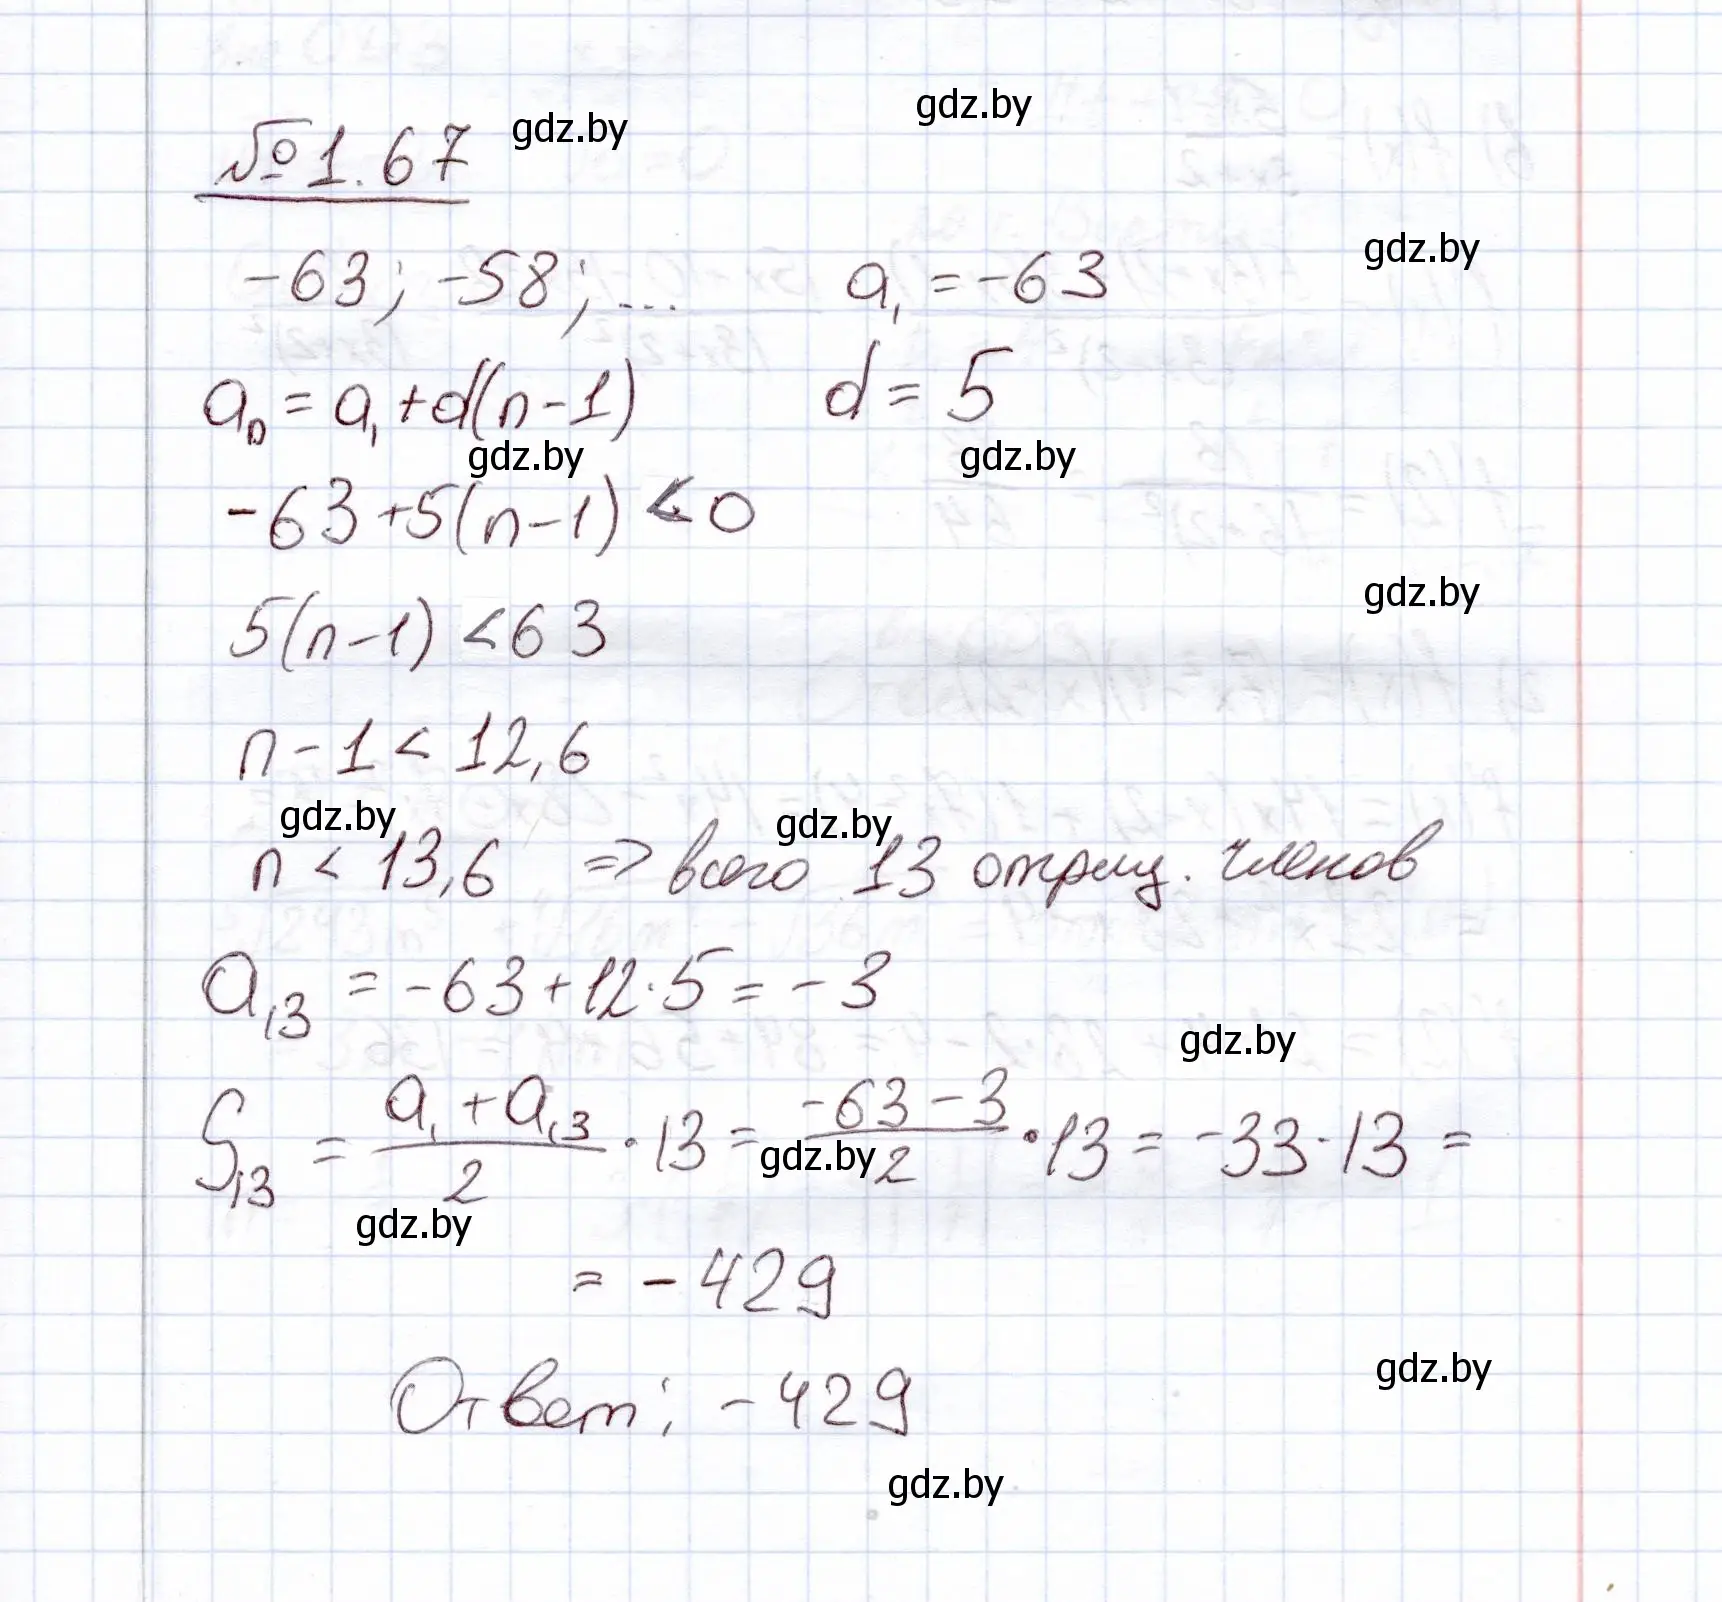 №1.67 gdz.by gdz.by
-63; -58; ... a₁ = -63 gdz.by
aₙ = a₁ + d(n-1) d = 5
gdz.by gdz.by
-63+5(n-1) < 0
gdz.by
5(n-1) < 63
n-1 < 12,6
gdz.by gdz.by
n < 13,6 => всего 13 отриц. членов
a₁₃ = -63+12·5 = -3
gdz.by
S₁₃ = (a₁+a₁₃)/2 · 13 = (-63-3)/2 · 13 = -33·13 =
gdz.by
gdz.by
= -429
Ответ: -429 gdz.by
gdz.by